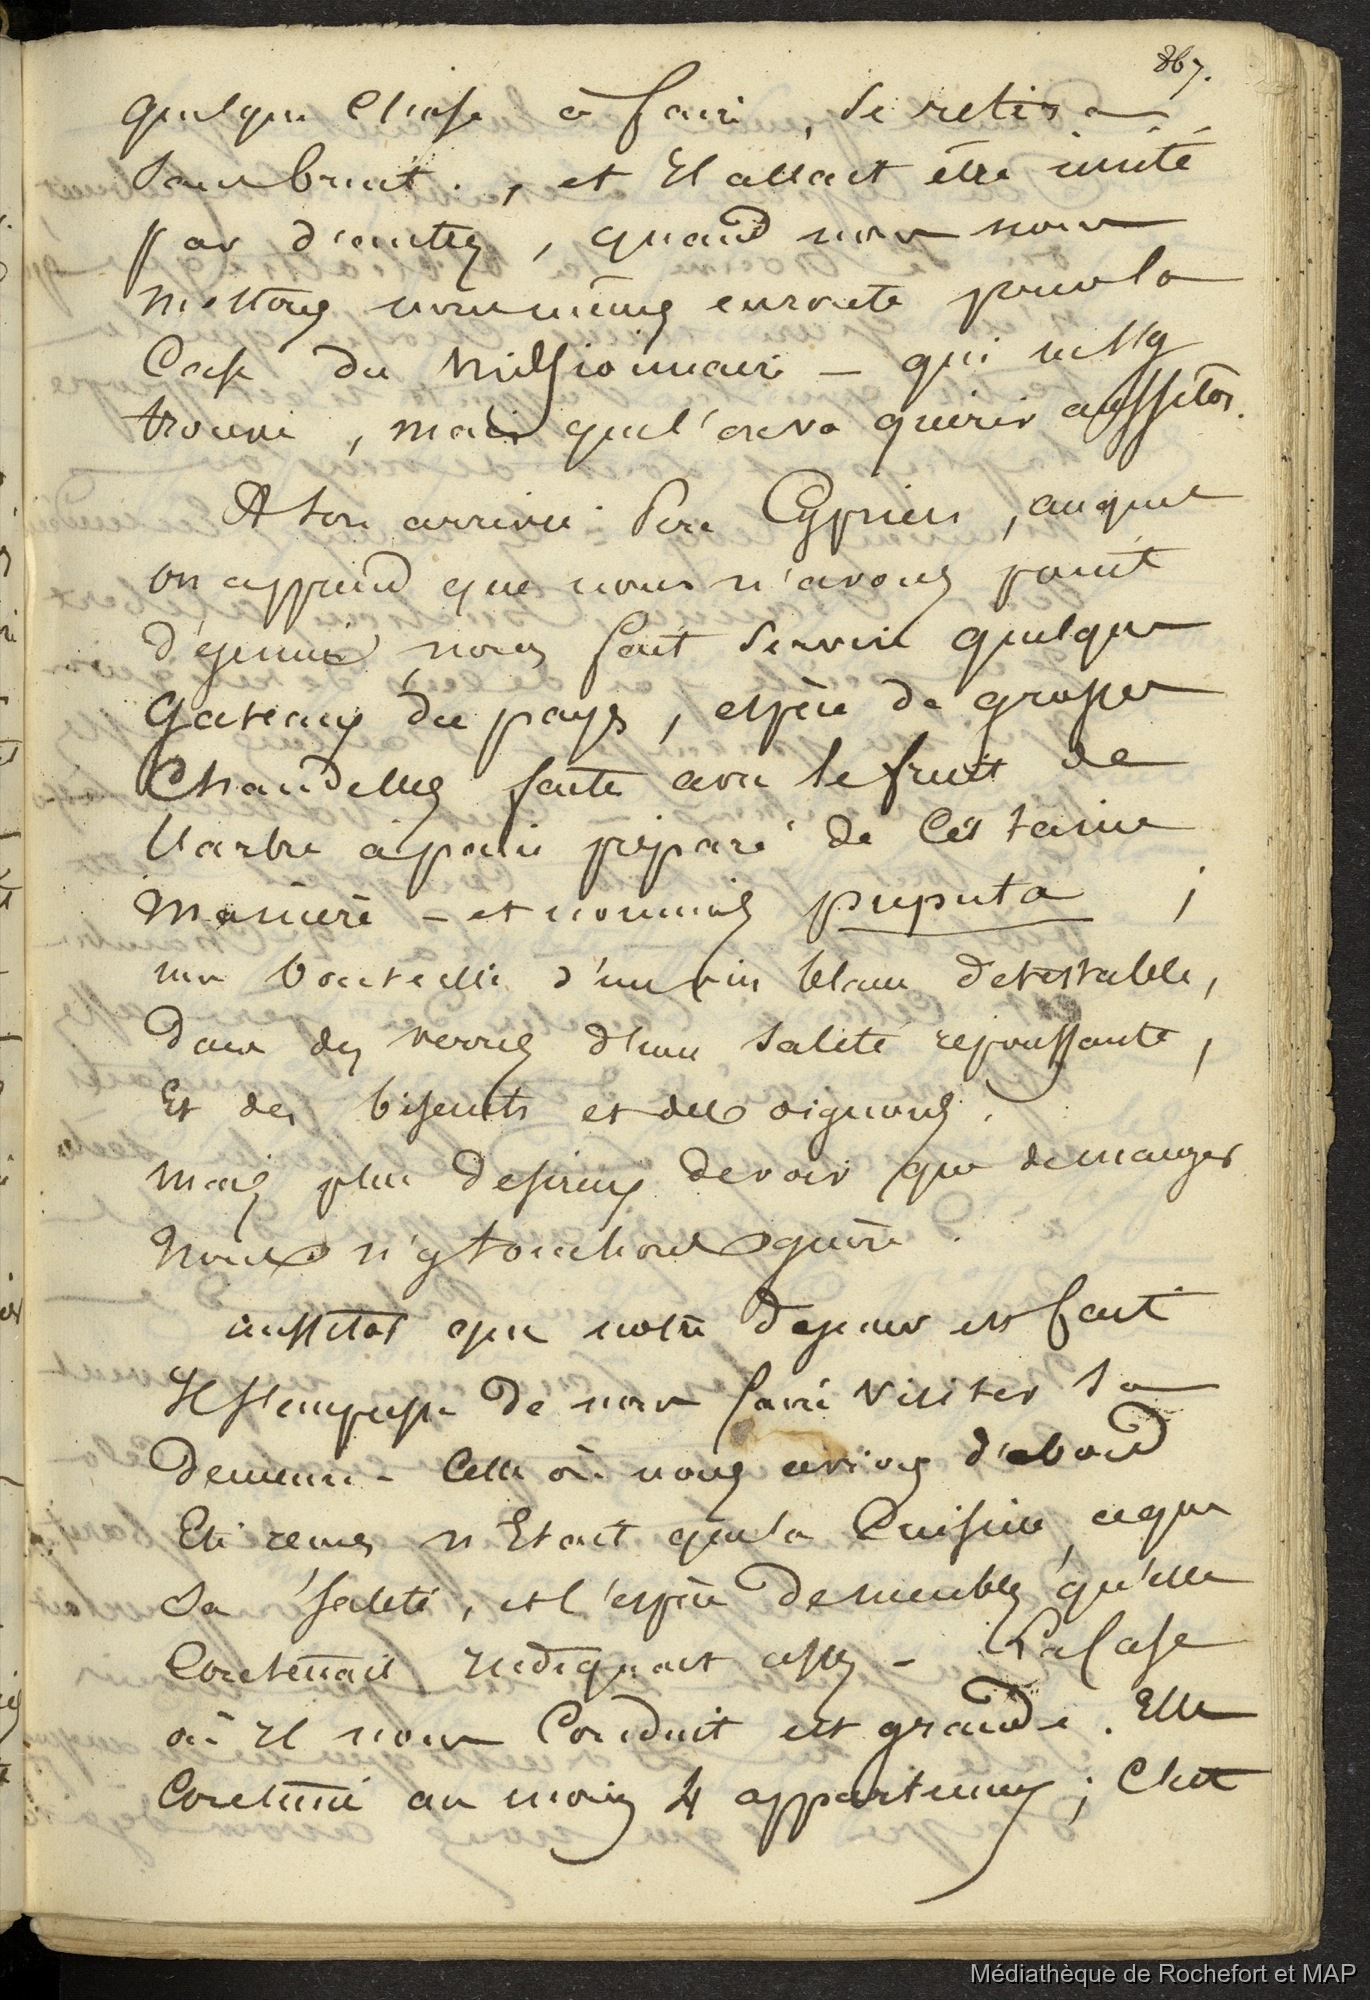 867.
quelque chose à faire, se retira
sans bruit., et Il allait être imité
par d'autres, quand nous nous
mettons nous mêmes en route pour la
Case du Missionnaire – qui
trouve, mais qu'l'on va quérir aussitôt.
A son arrivée Père Cyprien, auquel
on apprend que nous n'avons point
déjeuné, nous fait servir quelque
gateaux du pays, espèce de grosses
Chandelles faite avec le fruit de
l'arbre à pain préparé de Certaine
Manière – et nommés puputa ;
une bouteille d'un vin blanc détestable,
dans des verres d'une saleté repoussante,
Et des biscuits et des oignons.
Mais plus desireux de voir que de manger
Nous n'y touchons guère.
aussitot que notre dejeuner est fait
Il s'empresse de nous faire visiter sa
demeure – Celle où nous avions d'abord
Eté recus n'Etait que la Cuisine, ce que
sa saleté, et l'espèce de meubles qu'elle
Contenait Indiquait assez – La Case
où Il nous Conduit est grande. Elle
Contient au moins 4 appartemens ; C'est
Médiathèque de Rochefort et MAP